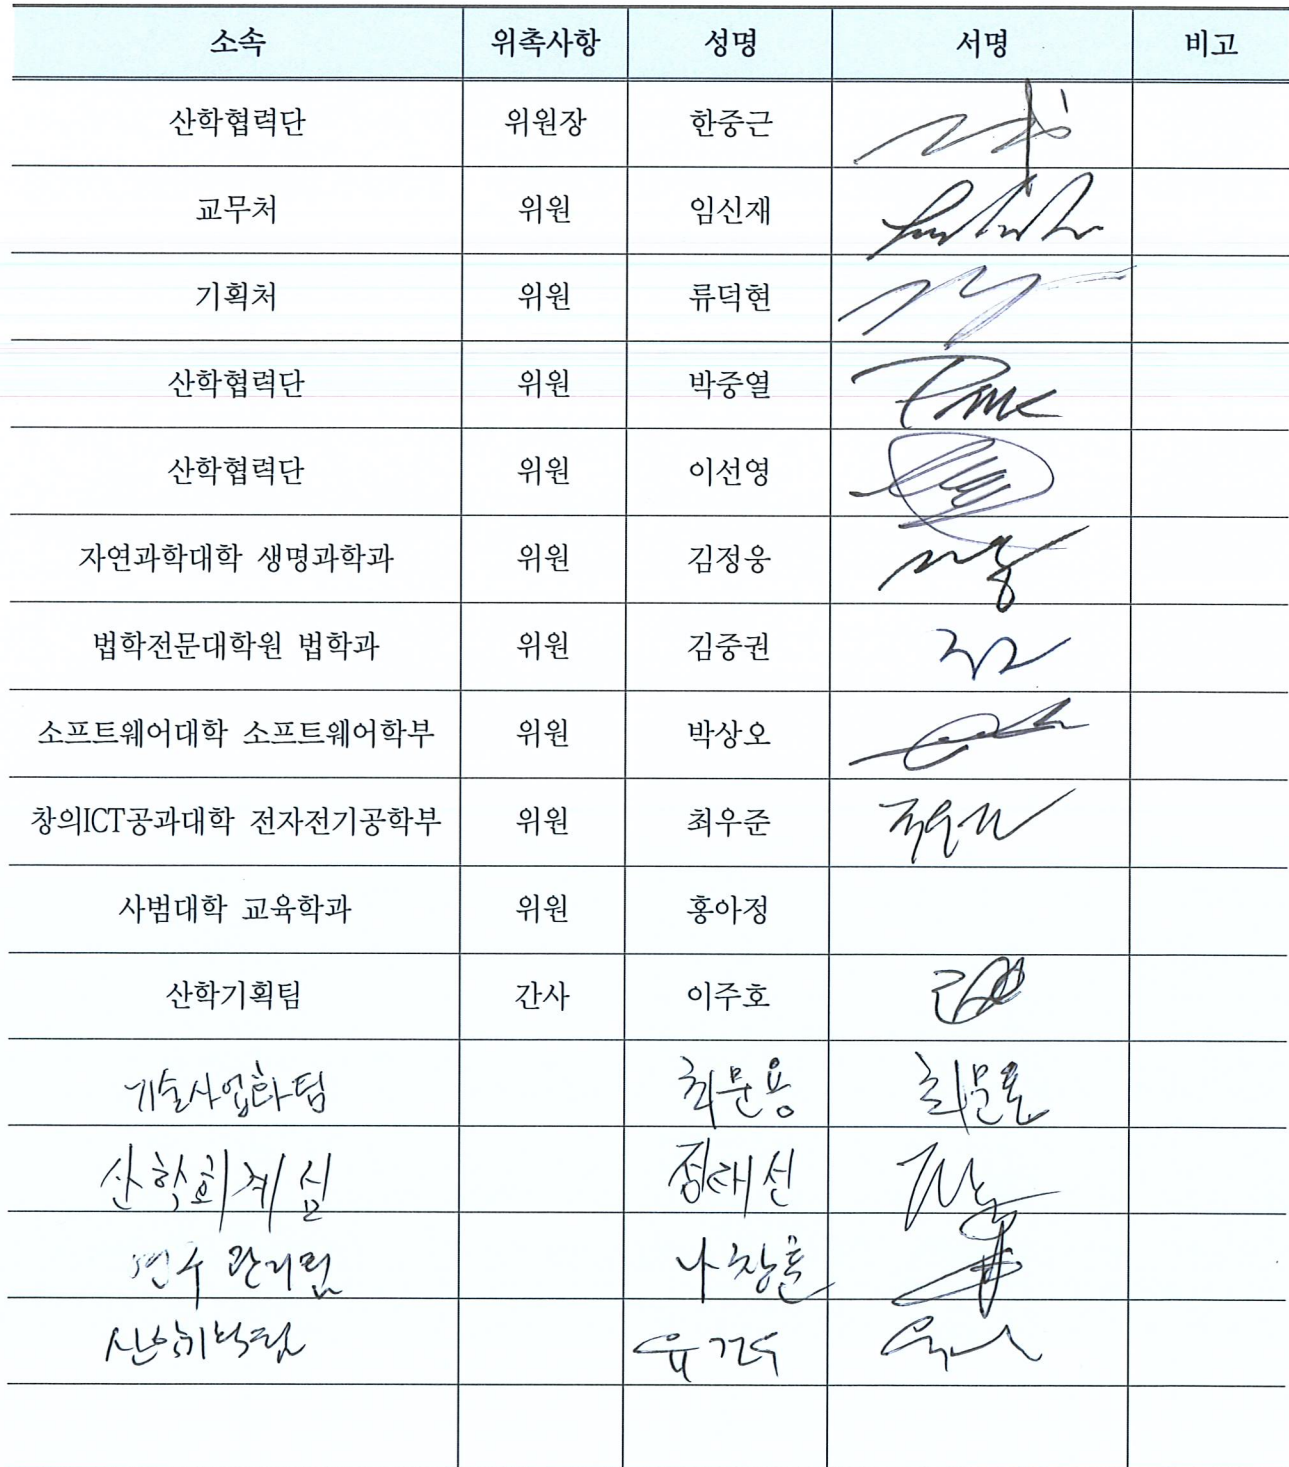 소속 위촉사항 성명 서명 비고
산학협력단 위원장 한중근
교무처 위원 임신재
기획처 위원 류덕현
산학협력단 위원 박중열
산학협력단 위원 이선영
자연과학대학 생명과학과 위원 김정웅
법학전문대학원 법학과 위원 김중권
소프트웨어대학 소프트웨어학부 위원 박상오
창의ICT공과대학 전자전기공학부 위원 최우준
사범대학 교육학과 위원 홍아정
산학기획팀 간사 이주호
기술사업화팀 최문용 최문용
산학회계팀 정해선
관리팀 나창훈